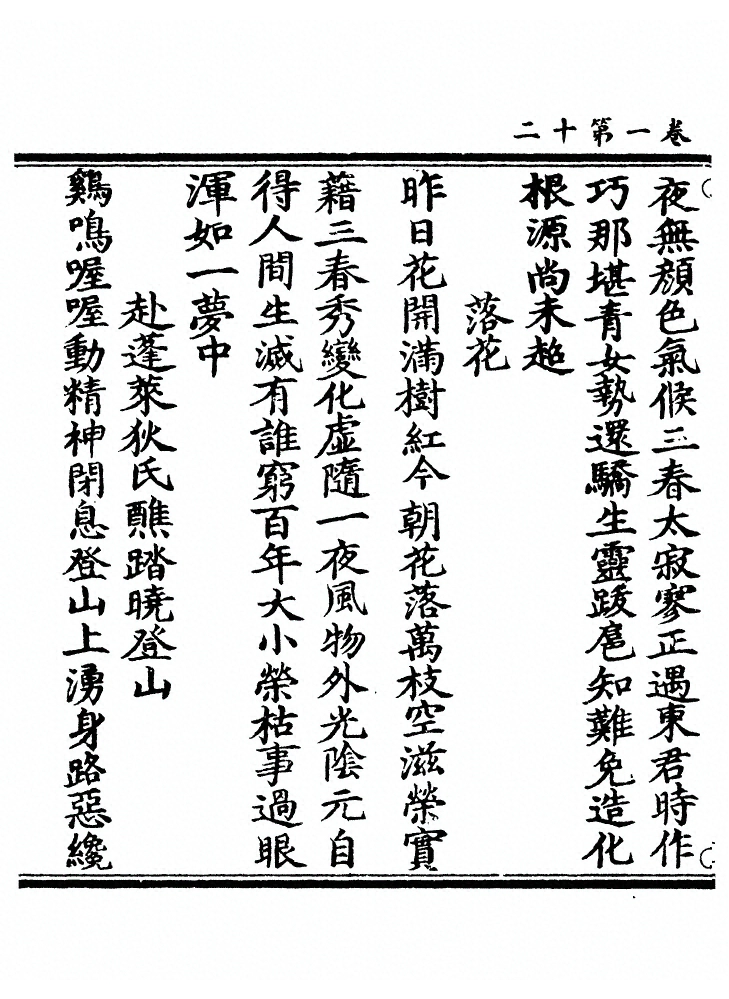 卷一第十二
夜無顏色氣候三春太寂寥正遇東君時作
巧那堪青女勢還驕生靈跋扈知難免造化
根源尚未超
落花
昨日花開滿樹紅今朝花落萬枝空滋榮實
藉三春秀變化虛隨一夜風物外光陰元自
得人間生滅有誰窮百年大小榮枯事過眼
渾如一夢中
赴蓬萊狄氏醮踏曉登山
鷄鳴喔喔動精神閉息登山上湧身路惡纔